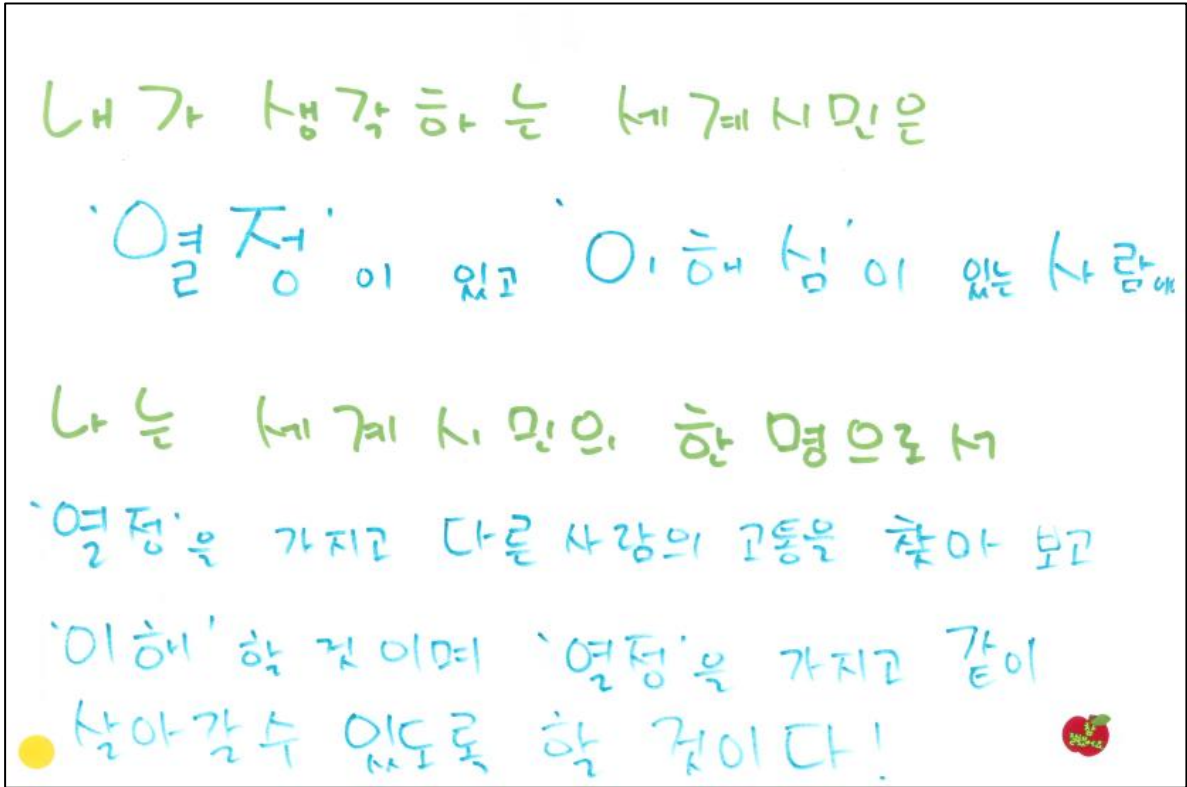 내가 생각하는 세계시민은
'열정'이 있고 '이해심'이 있는 사람
나는 세계시민의 한 명으로서
'열정'을 가지고 다른 사람의 고통을 찾아 보고
'이해'할 것이며 '열정'을 가지고 같이
살아갈 수 있도록 할 것이다!
참
잘했어요